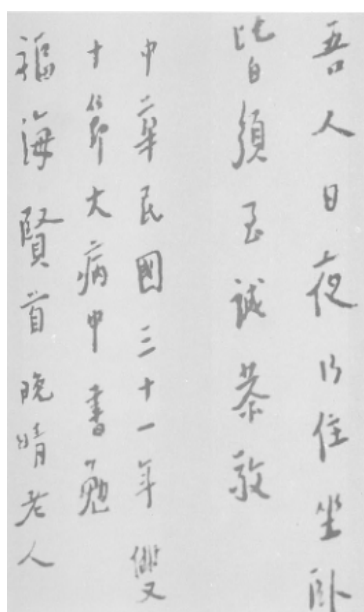 吾人日夜行住坐卧
皆須至誠恭敬
中華民國三十一年雙
十節大病中書勉
福海賢首 晚晴老人